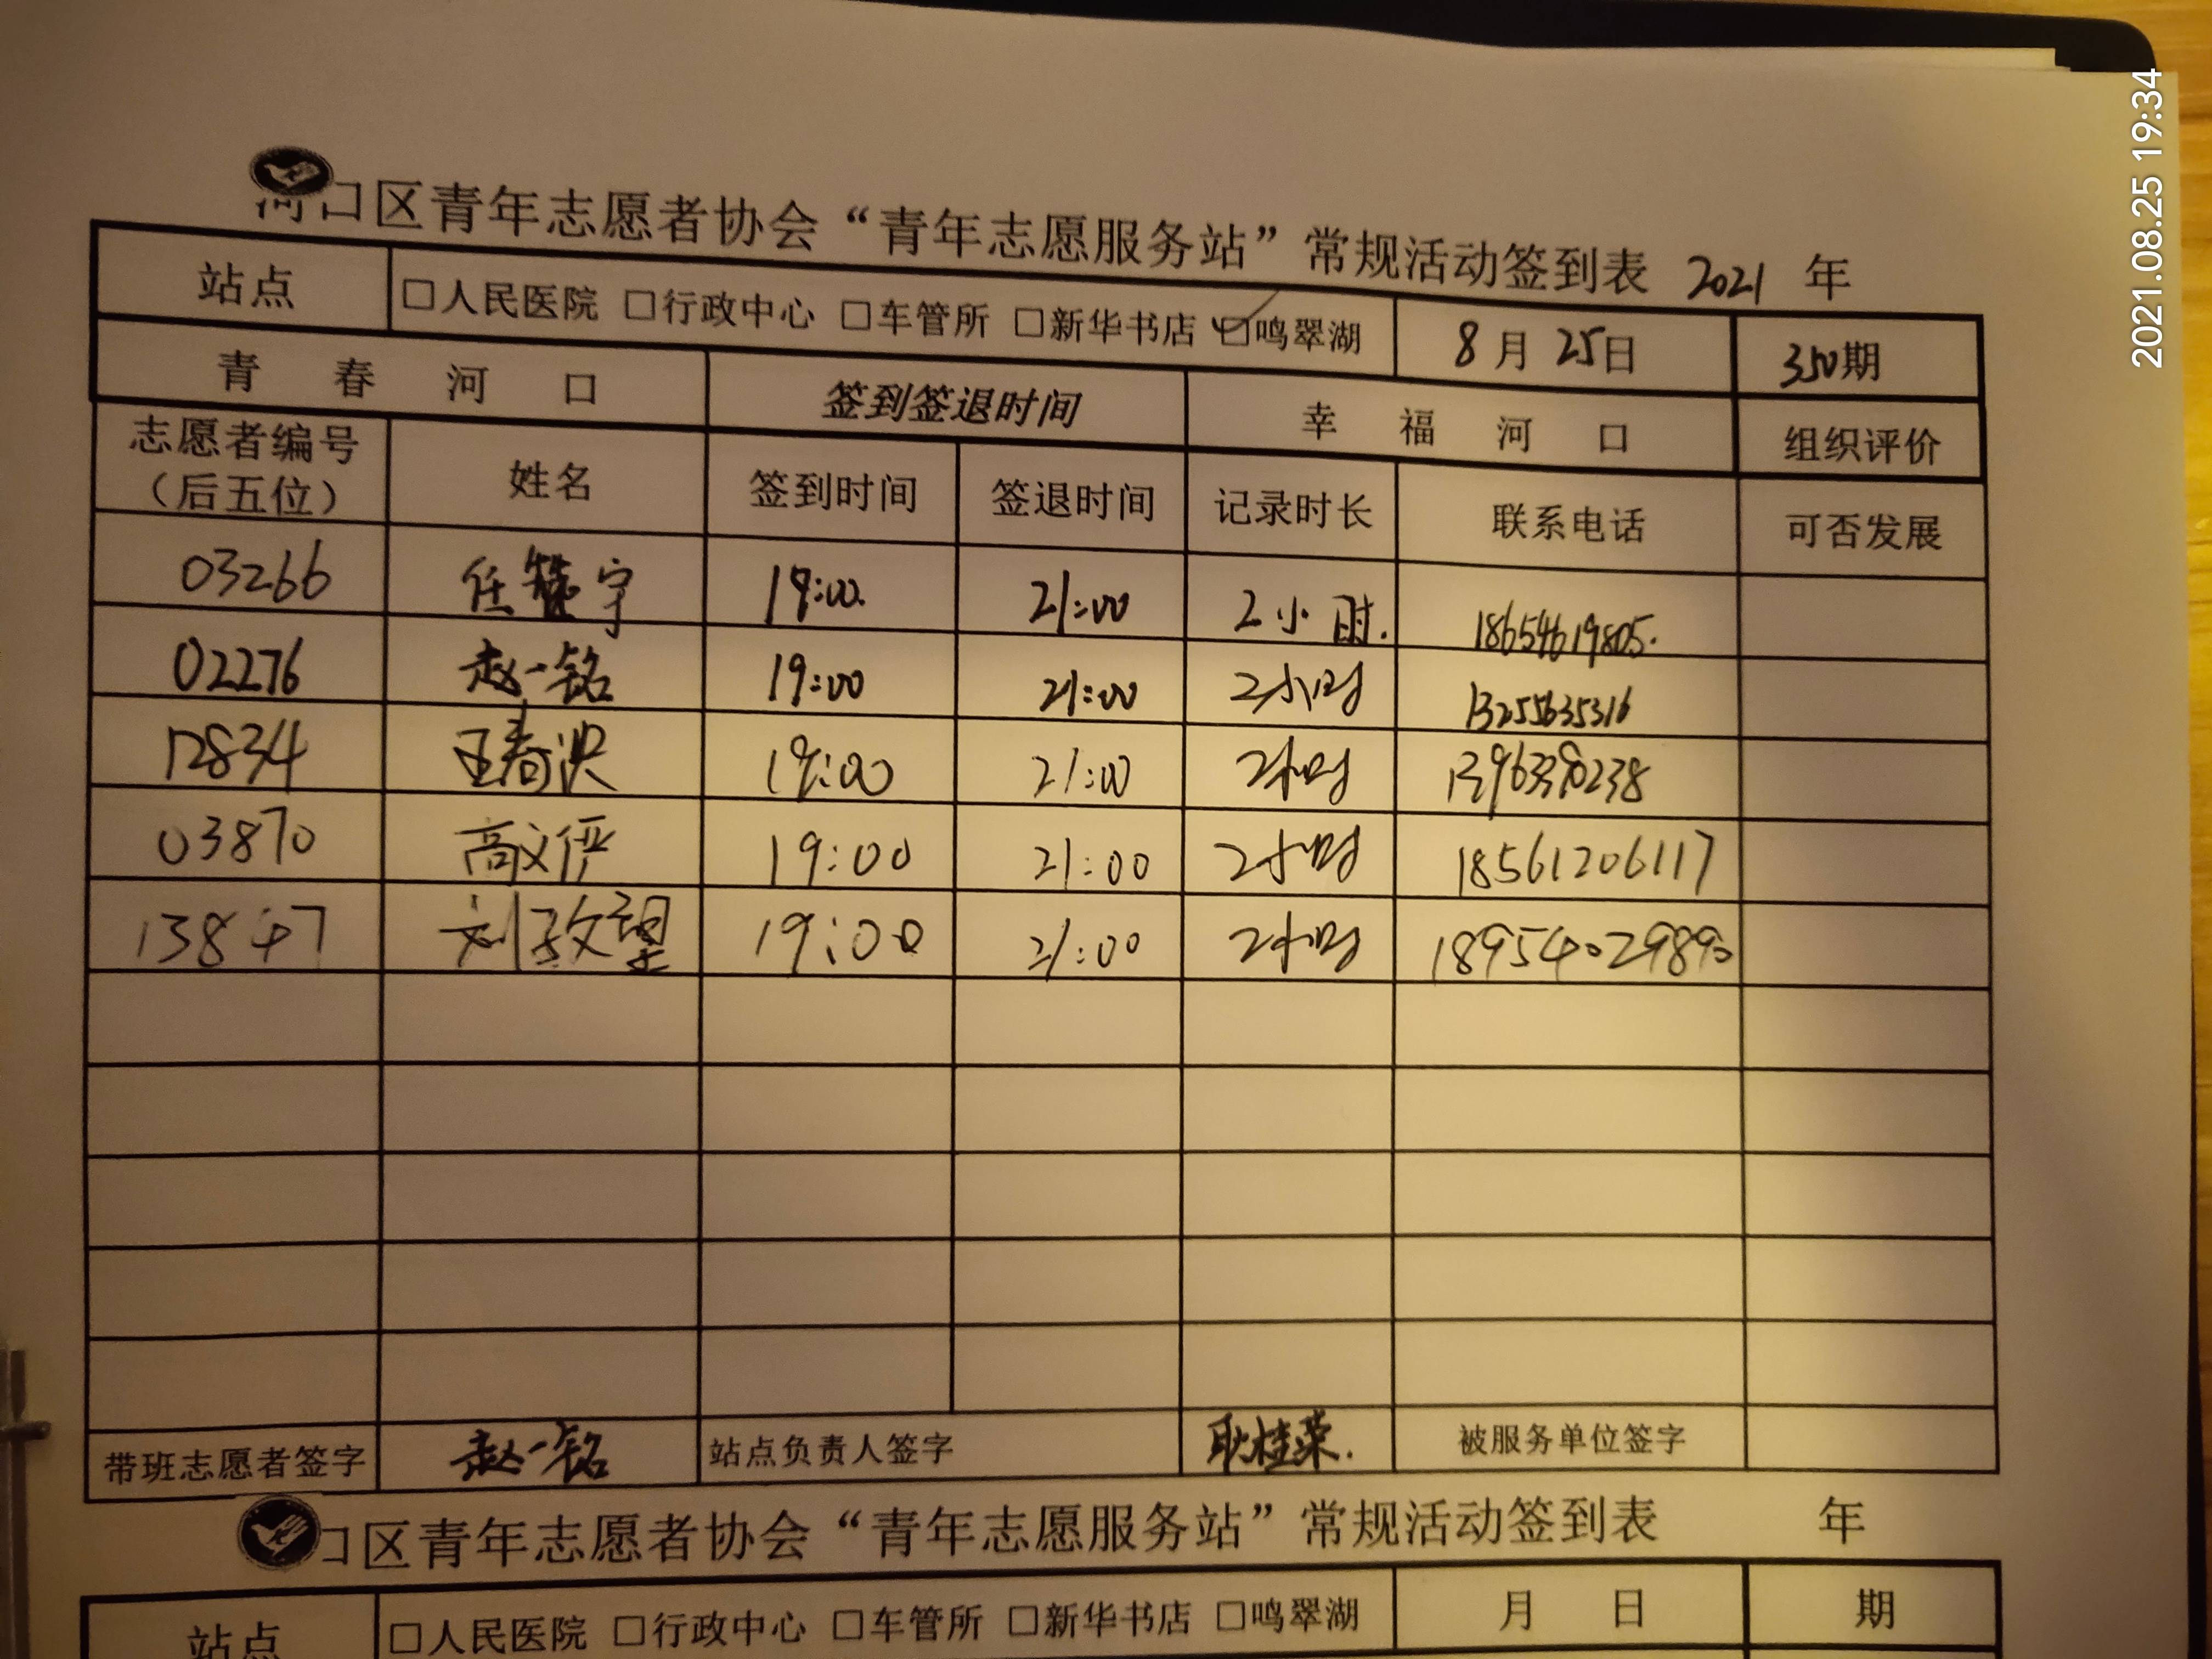 河口区青年志愿者协会“青年志愿服务站”常规活动签到表 2021 年
站点 □人民医院 □行政中心 □车管所 □新华书店 ☑鸣翠湖 8月25日 350期
青春河口 签到签退时间 幸福河口 组织评价
志愿者编号（后五位） 姓名 签到时间 签退时间 记录时长 联系电话 可否发展
03266 任宇 19:00. 21:00 2小时. 18654619805.
02276 赵一铭 19:00 21:00 2小时 13255635316
12834 王春洪 19:00 21:00 2小时
03870 高文严 19:00 21:00 2小时 18561206117
13847 刘孜望 19:00 21:00 2小时 18954029890
带班志愿者签字 赵一铭 站点负责人签字 耿桂荣. 被服务单位签字
口区青年志愿者协会“青年志愿服务站”常规活动签到表 年
站点 □人民医院 □行政中心 □车管所 □新华书店 □鸣翠湖 月 日 期
2021.08.25 19:34